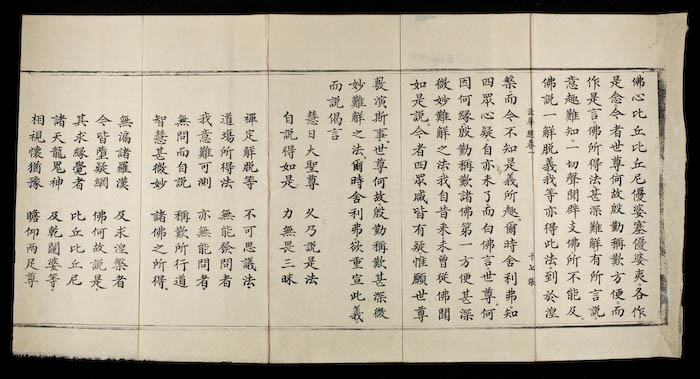 佛心比丘比丘尼優婆塞優婆夷各作
是念今者世尊何故殷勤稱歎方便而
作是言佛所得法甚深難解有所言説
意趣難知一切聲聞辟支佛所不能及
佛説一解脱義我等亦得此法到於涅
法華經卷一 十七張
槃而今不知是義所趣爾時舍利弗知
四眾心疑自亦未了而白佛言世尊何
因何緣殷勤稱歎諸佛第一方便甚深
微妙難解之法我自昔來未曾從佛聞
如是説今者四眾咸皆有疑惟願世尊
敷演斯事世尊何故殷勤稱歎甚深微
妙難解之法爾時舍利弗欲重宣此義
而説偈言
慧日大聖尊 久乃説是法
自説得如是 力無畏三昧
禪定解脱等 不可思議法
道場所得法 無能發問者
我意難可測 亦無能問者
無問而自説 稱歎所行道
智慧甚微妙 諸佛之所得
無漏諸羅漢 及求涅槃者
今皆墮疑網 佛何故説是
其求緣覺者 比丘比丘尼
諸天龍鬼神 及乾闥婆等
相視懷猶豫 瞻仰兩足尊